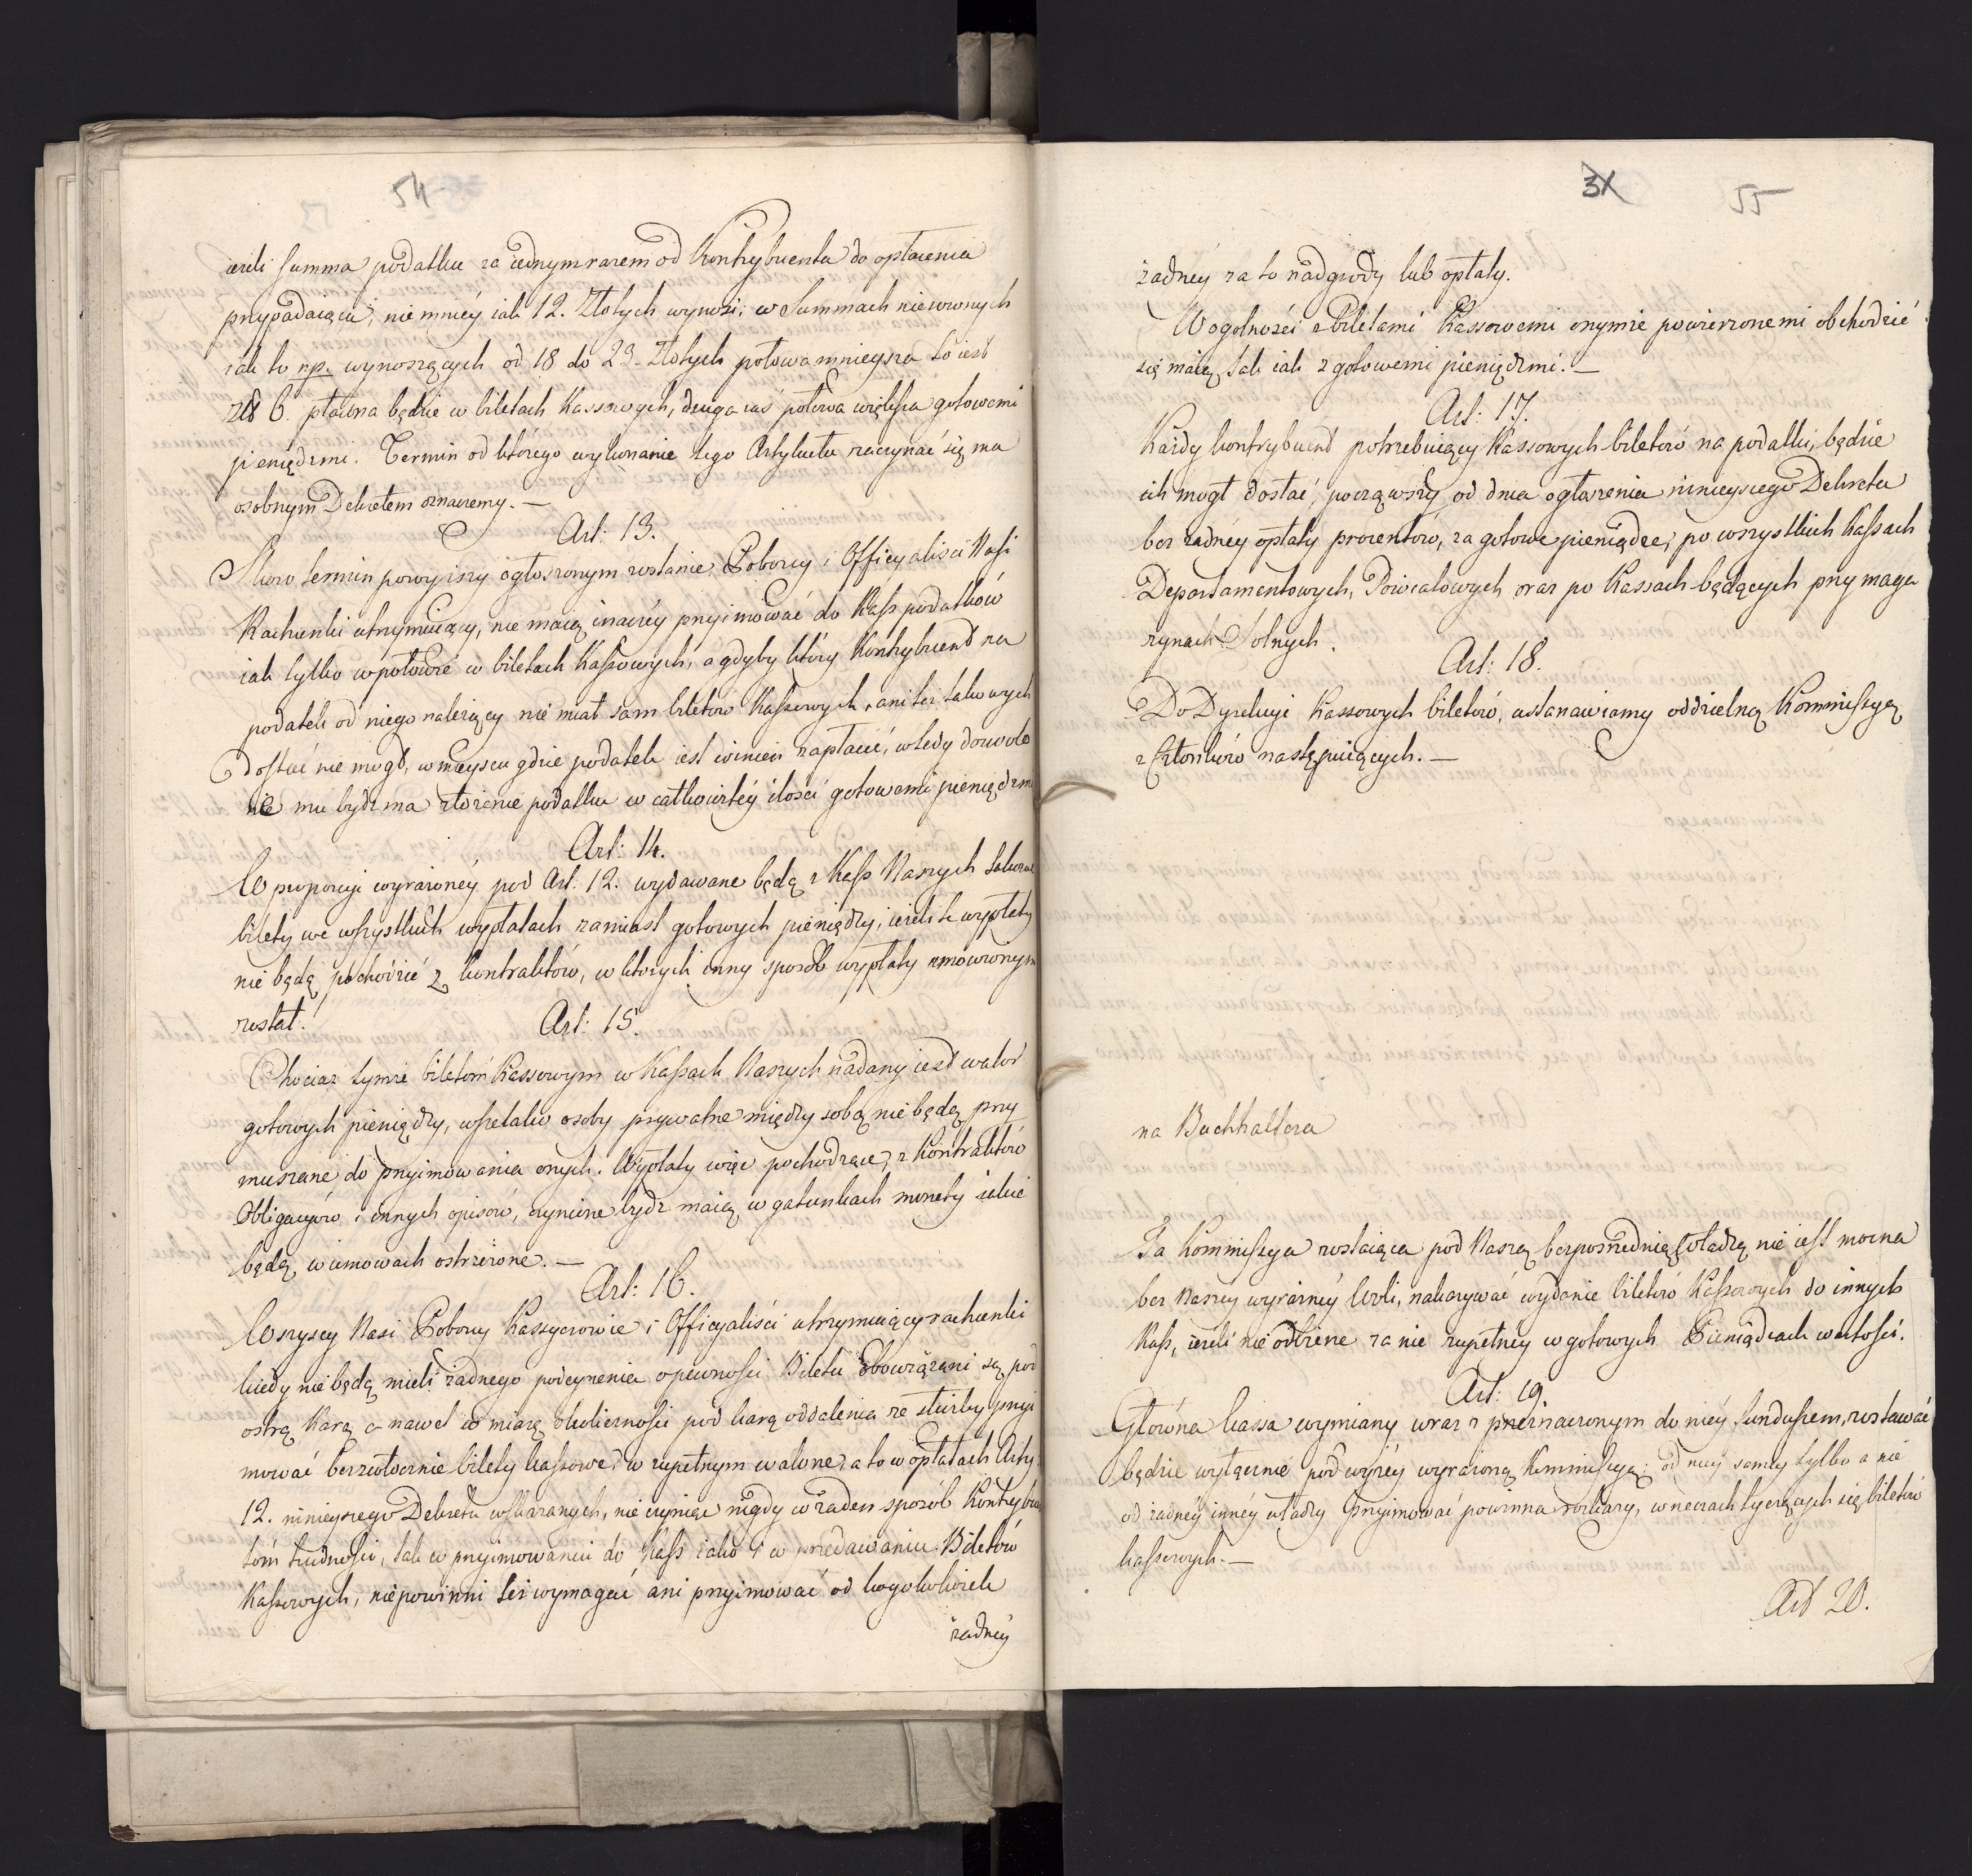 54
ieżeli summa podatku za iednym razem od Kontrybuenta do opłacenia
przypadaiąca, nie mniey iak 12. Złotych wynosi; w Summach nierownych
iak to np. wynoszących od 18 do 23. Złotych połowa mnieysza to iest
zł 6. płatna będzie w biletach Kassowych, druga zaś połowa większa gotowemi
pieniędzmi. Termin od którego wykonanie tego Artykułu zaczynać się ma
osobnym Dekretem oznaczemy. —
Art: 13.
Skoro termin powyższy ogłoszonym zostanie, Poborcy i Officyaliści Nasi
Rachunki utrzymuiący, nie maią inaczéy przyimować do Kass podatków
iak tylko wpołowie w biletach Kassowych, a gdyby który Kontrybuent na
podatek od niego należący nie miał sam biletów Kassowych, ani też takowych
dostać nie mógł, w mieyscu gdzie podatek iest winien zapłacić, wtedy dozwolo
ne mu bydź ma złożenie podatku w całkowitéy ilości gotowemi pieniędzmi
Art: 14.
W proporcyi wyrażonéy pod Art. 12. wydawane będą z Kass Naszych takowe
bilety we wszystkich wypłatach zamiast gotowych pieniędzy, ieżeli te wypłaty
nie będą pochodzić z kontraktów, w których inny sposób wypłaty umówionym
został.
Art: 15.
Chociaż tymże biletom Kassowym w Kassach Naszych nadany iest walor
gotowych pieniędzy, wszelako osoby prywatne między sobą nie będą przy
muszane do przyimowania onych. Wypłaty więc pochodzące z Kontraktów
Obligacyów i innych opisów, czynione bydź maią w gatunkach monety iakie
będą w umowach ostrzeżone. —
Art: 16.
Wszyscy Nasi Poborcy Kassyerowie i Officyaliści utrzymuiący rachunki
kiedy nie będą mieli żadnego podeyrzenia o pewności Biletu obowiązani są pod
ostrą karą a nawet w miarę okoliczności pod karą oddalenia ze służby przyi
mować bezzwłocznie bilety kassowe, w zupełnym walorze, a to w opłatach Arty:
12. ninieyszego Dekretu wskazanych, nie czyniąc nigdy w żaden sposób Kontrybuen
tom trudności, tak w przyimowaniu do Kass iako i w przedawaniu Biletów
Kassowych, nie powinni też wymagać ani przyimować od kogokolwiek
żadnéy
31
55
żadnéy za to nadgrody lub opłaty.
W ogolności z biletami Kassowemi onymże powierzonemi obchodzić
się maią tak iak z gotowemi pieniędzmi. —
Art: 17.
Każdy kontrybuent potrzebuiący Kassowych biletów na podatki, będzie
ich mógł dostać, począwszy od dnia ogłoszenia ninieyszego Dekretu
bez żadnéy opłaty procentów, za gotowe pieniądze, po wszystkich Kassach
Departamentowych, Powiatowych oraz po Kassach będących przy maga
zynach Solnych.
Art: 18.
Do Dyrekcyi Kassowych biletów, ustanawiamy oddzielną Kommissyą
z Członków następuiących. —
na Buchhaltera
Ta Kommissya zostaiąca pod Naszą bezpośrednią władzą nie iest mocna
bez Naszey wyraźney Woli, nakazywać wydanie biletów Kassowych do innych
Kass, ieżeli nie odbierze za nie zupełney w gotowych Pieniądzach wartości.
Art: 19.
Główna kassa wymiany wraz z przeznaczonym do niéy funduszem, zostawać
będzie wyłącznie pod wyżéy wyrażoną Kommissyą; od niéy saméy tylko a nie
od żadnéy innéy władzy przyimować powinna rozkazy, w rzeczach tyczących się biletów
kassowych. —
Art 20.